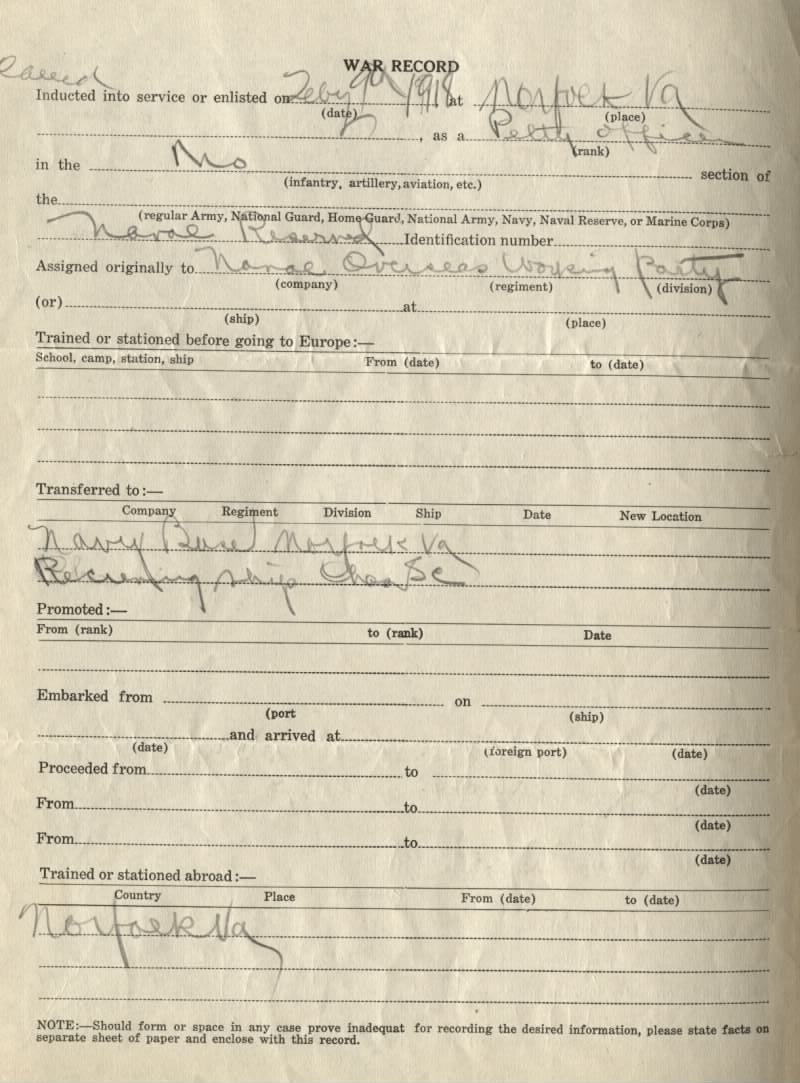 WAR RECORD
Inducted into service or enlisted on Feby 9th 1918 at Norfolk Va
(date) (place)
, as a Petty Officer
(rank)
in the No section of
(infantry, artillery, aviation, etc.)
the
(regular Army, National Guard, Home Guard, National Army, Navy, Naval Reserve, or Marine Corps)
Naval Reserve Identification number
Assigned originally to Naval Overseas Working Party
(company) (regiment) (division)
(or) at
(ship) (place)
Trained or stationed before going to Europe:—
School, camp, station, ship From (date) to (date)
Transferred to:—
Company Regiment Division Ship Date New Location
Navy Base Norfolk Va
Recieving ship Chas, SC
Promoted:—
From (rank) to (rank) Date
Embarked from on
(port (ship)
and arrived at
(date) (foreign port) (date)
Proceeded from to
(date)
From to
(date)
From to
(date)
Trained or stationed abroad:—
Country Place From (date) to (date)
Norfolk Va
NOTE:—Should form or space in any case prove inadequat for recording the desired information, please state facts on
separate sheet of paper and enclose with this record.